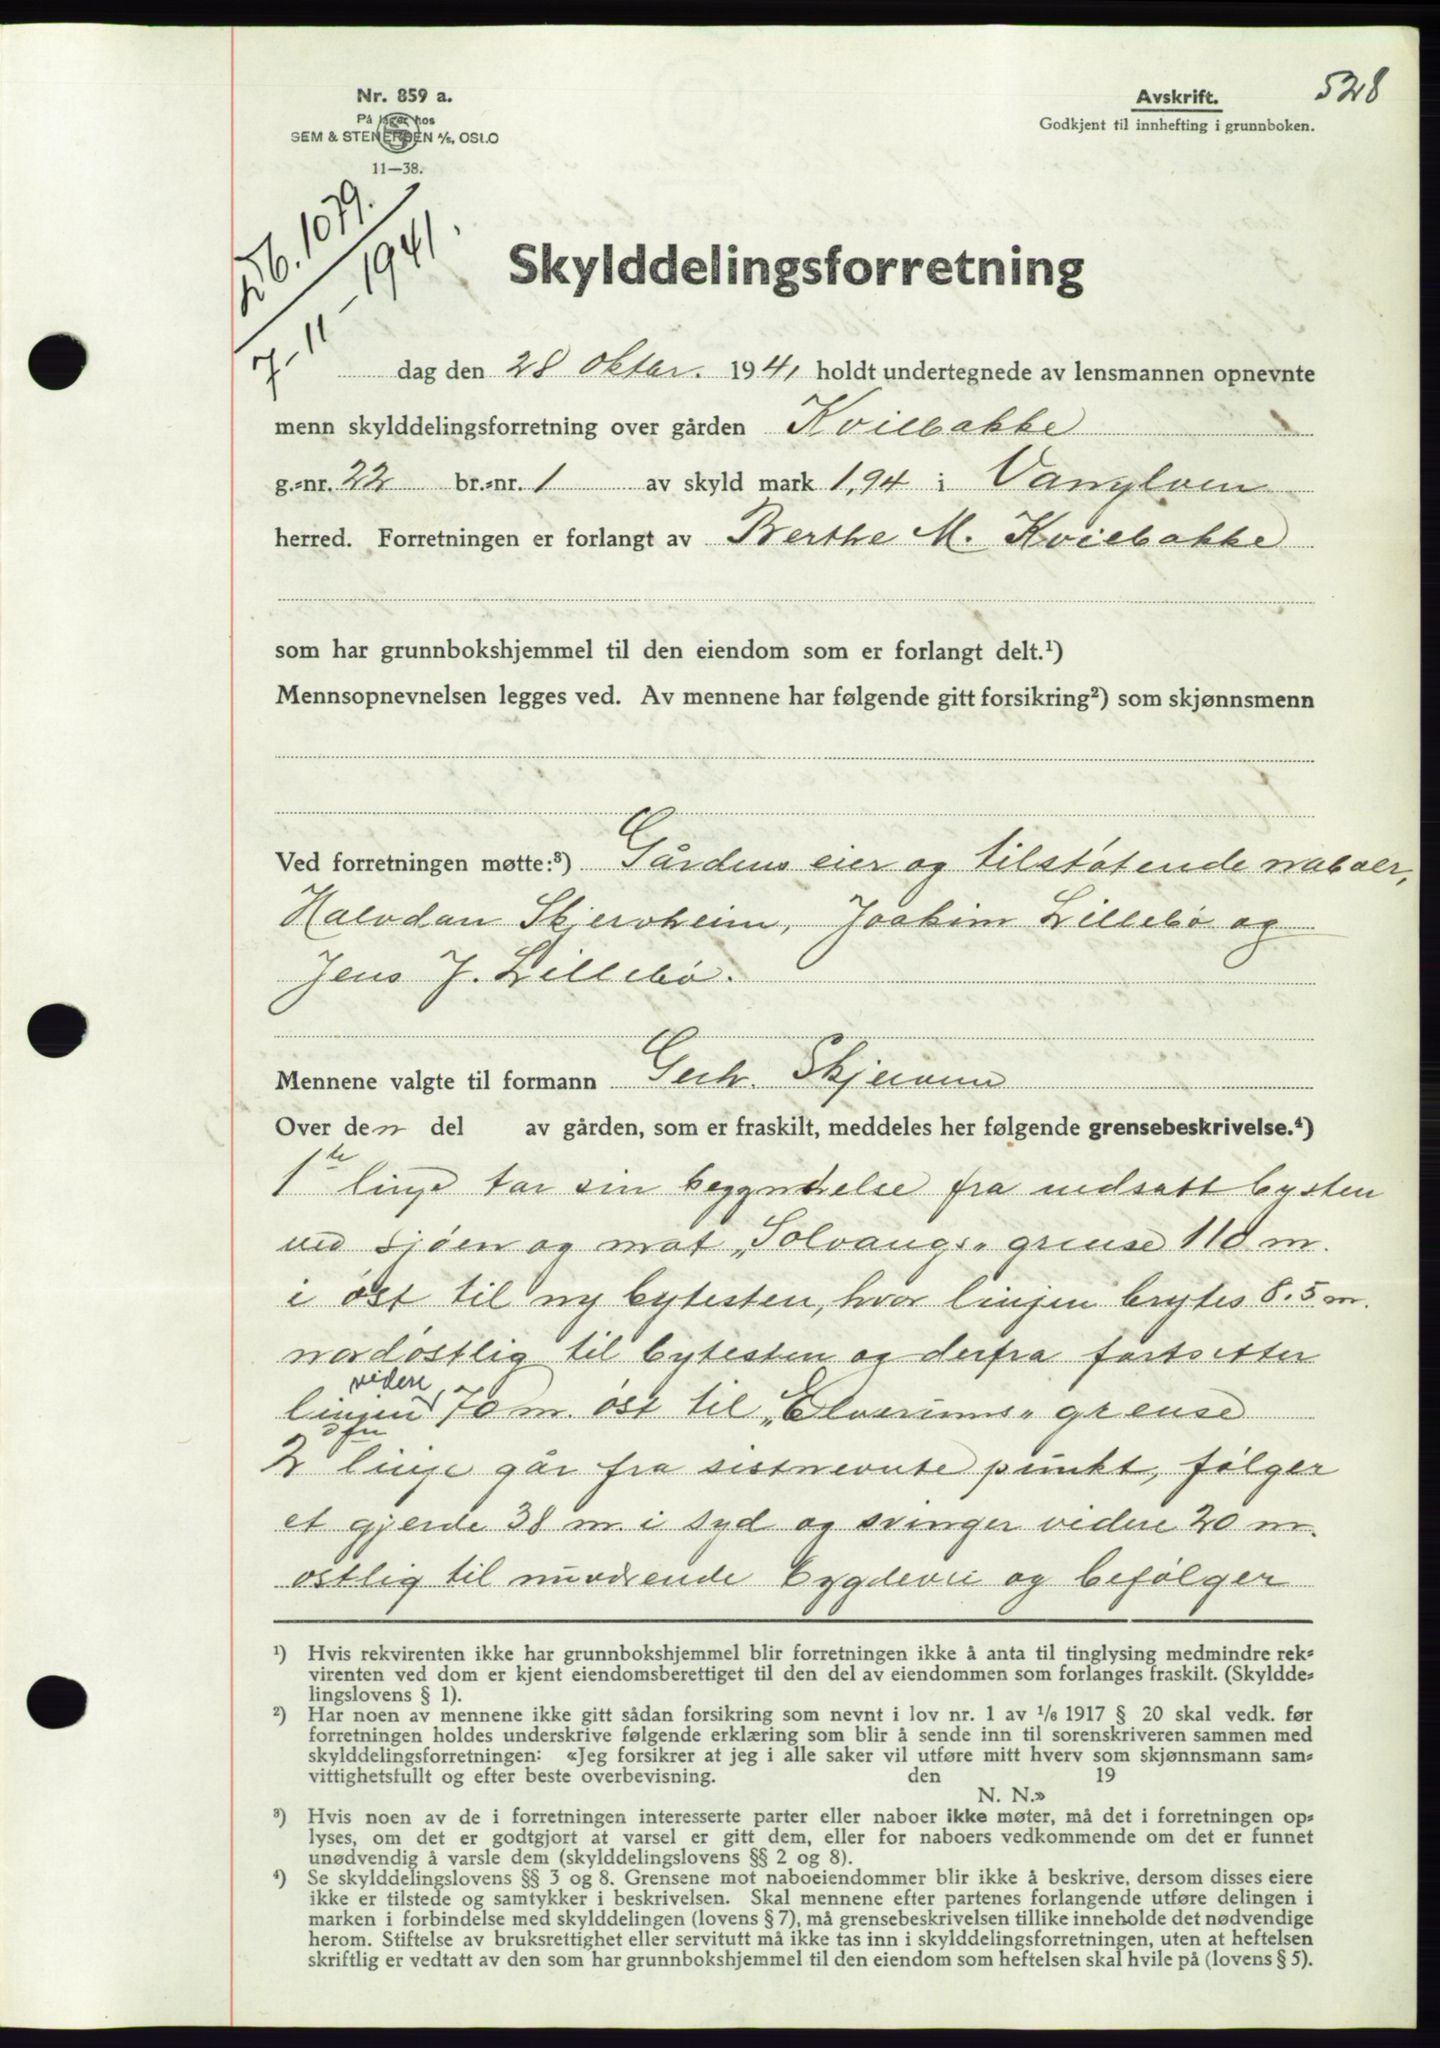 528
Nr. 859 a.
På lager hos
SEM & STENERSEN A/S, OSLO
11—38.
Avskrift.
Godkjent til innhefting i grunnboken.
Db. 1079.
7-11-1941.
Skylddelingsforretning
dag den 28 oktbr. 1941, holdt undertegnede av lensmannen opnevnte
menn skylddelingsforretning over gården Kvilebakke
g.=nr. 22 br.=nr. 1 av skyld mark 1,94 i Vanylven
herred. Forretningen er forlangt av Berthe M. Kvilebakke
som har grunnbokshjemmel til den eiendom som er forlangt delt.¹)
Mennsopnevnelsen legges ved. Av mennene har følgende gitt forsikring²) som skjønnsmenn
Ved forretningen møtte:³) Gårdens eier og tilstøtende naboer,
Halvdan Skjervheim, Joakim Lillebø og
Jens J. Lillebø.
Mennene valgte til formann Gerh. Skjerven
Over den del av gården, som er fraskilt, meddeles her følgende grensebeskrivelse.⁴)
1te linje tar sin begyndelse fra nedsatt bysten
ved sjøen og mot „Solvangs„ grense 110 m.
i øst til ny bytesten, hvor linjen brytes 8.5 m.
nordøstlig til bytesten og derfra fortsetter
linjen videre 70 m. øst til „Elverums„ grense
2 linje går fra sistnevnte punkt, følger
et gjerde 38 m. i syd og svinger videre 20 m.
østlig til nuværende bygdevei og befølger
¹) Hvis rekvirenten ikke har grunnbokshjemmel blir forretningen ikke å anta til tinglysing medmindre rek=
virenten ved dom er kjent eiendomsberettiget til den del av eiendommen som forlanges fraskilt. (Skyldde=
lingslovens § 1).
²) Har noen av mennene ikke gitt sådan forsikring som nevnt i lov nr. 1 av 1/6 1917 § 20 skal vedk. før
forretningen holdes underskrive følgende erklæring som blir å sende inn til sorenskriveren sammen med
skylddelingsforretningen: «Jeg forsikrer at jeg i alle saker vil utføre mitt hverv som skjønnsmann sam=
vittighetsfullt og efter beste overbevisning. den 19
N. N.»
³) Hvis noen av de i forretningen interesserte parter eller naboer ikke møter, må det i forretningen op=
lyses, om det er godtgjort at varsel er gitt dem, eller for naboers vedkommende om det er funnet
unødvendig å varsle dem (skylddelingslovens §§ 2 og 8).
⁴) Se skylddelingslovens §§ 3 og 8. Grensene mot naboeiendommer blir ikke å beskrive, dersom disses eiere
ikke er tilstede og samtykker i beskrivelsen. Skal mennene efter partenes forlangende utføre delingen i
marken i forbindelse med skylddelingen (lovens § 7), må grensebeskrivelsen tillike inneholde det nødvendige
herom. Stiftelse av bruksrettighet eller servitutt må ikke tas inn i skylddelingsforretningen, uten at heftelsen
skriftlig er vedtatt av den som har grunnbokshjemmel til den eiendom som heftelsen skal hvile på (lovens § 5).